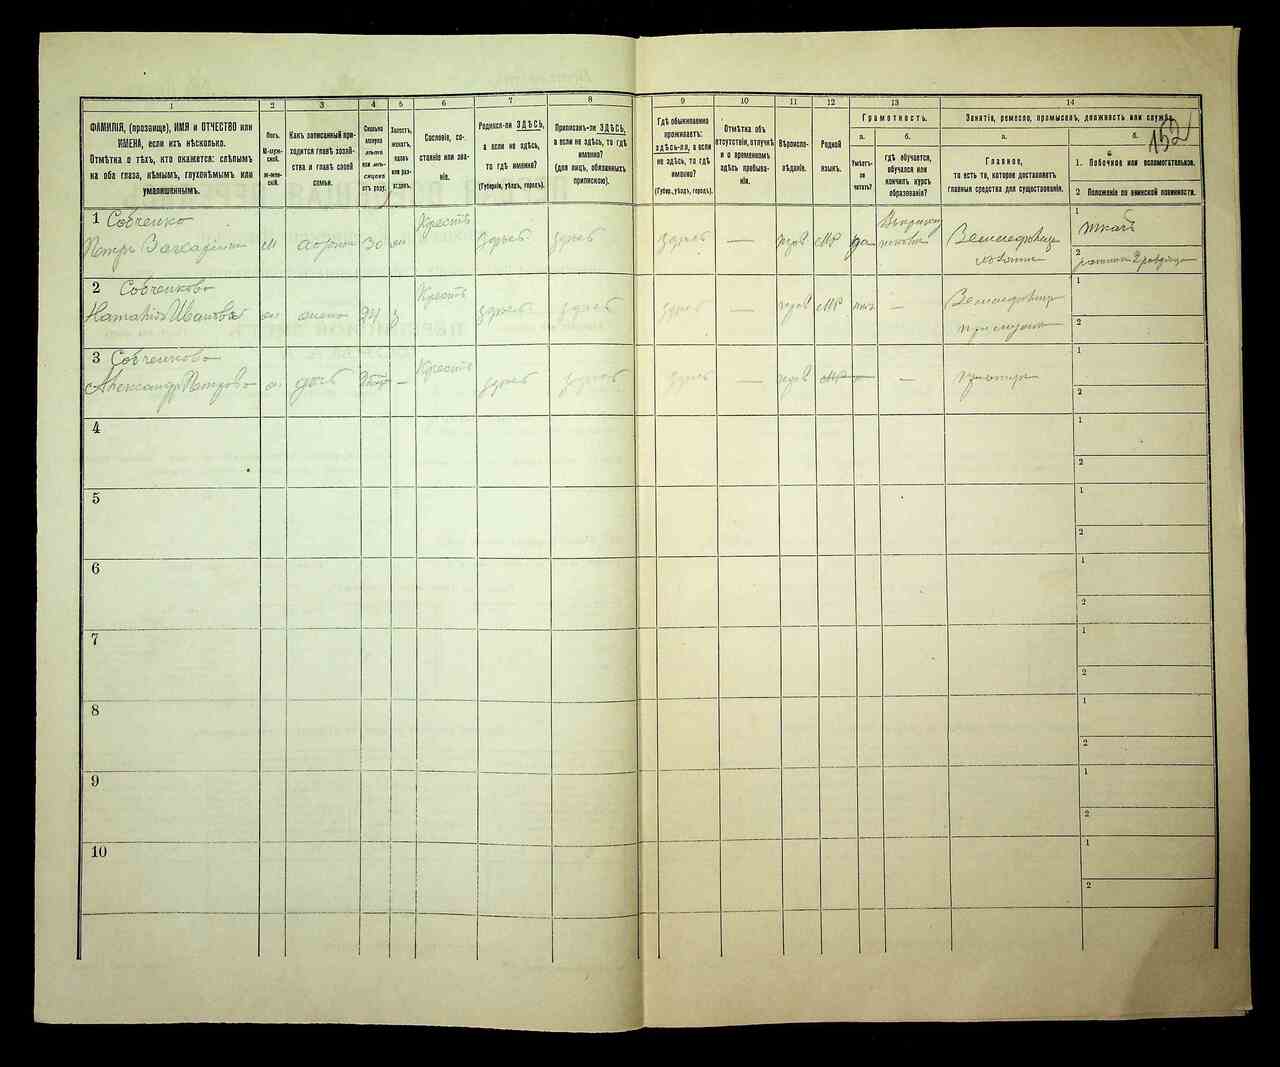 1
2
3
4
5
6
7
8
9
10
11
12
13
14
ФАМИЛІЯ, (прозвище), ИМЯ и ОТЧЕСТВО или
ИМЕНА, если ихъ нѣсколько.
Отмѣтка о тѣхъ, кто окажется: слѣпымъ
на оба глаза, нѣмымъ, глухонѣмымъ или
умалишеннымъ.
Полъ.
М-муж-
ской.
Ж-жен-
скій.
Какъ записанный при-
ходится главѣ хозяй-
ства и главѣ своей
семьи.
Сколько
минуло
лѣтъ
или мѣ-
сяцевъ
отъ роду.
Холостъ,
женатъ,
вдовъ
или раз-
веденъ.
Сословіе, со-
стояніе или зва-
ніе.
Родился-ли ЗДѢСЬ,
а если не здѣсь,
то гдѣ именно?
(Губернія, уѣздъ, городъ).
Приписанъ-ли ЗДѢСЬ,
а если не здѣсь, то гдѣ
именно?
(для лицъ, обязанныхъ
припискою).
Гдѣ обыкновенно
проживаетъ:
здѣсь-ли, а если
не здѣсь, то гдѣ
именно?
(Губер., уѣздъ, городъ).
Отмѣтка объ
отсутствіи, отлучкѣ
и о временномъ
здѣсь пребыва-
ніи.
Вѣроиспо-
вѣданіе.
Родной
языкъ.
Грамотность.
а.
Умѣетъ-
ли
читать?
б.
гдѣ обучается,
обучался или
кончилъ курсъ
образованія?
Занятіе, ремесло, промыселъ, должность или служба.
152
а.
Главное,
то есть то, которое доставляетъ
главныя средства для существованія.
б.
1. Побочное или вспомогательное.
2 Положеніе по воинской повинности.
1 Собченко
Петръ
м
30
Крестъ
здѣсь
здѣсь
здѣсь
—
да
1
ткачъ
2
2 Собченкова
Наталія Иванова
жена
Крестъ
здѣсь
здѣсь
здѣсь
—
—
1
2
3 Собченкова
Александра Петрова
дочь
—
Крестъ
здѣсь
здѣсь
здѣсь
—
—
1
2
4
1
2
5
1
2
6
1
2
7
1
2
8
1
2
9
1
2
10
1
2